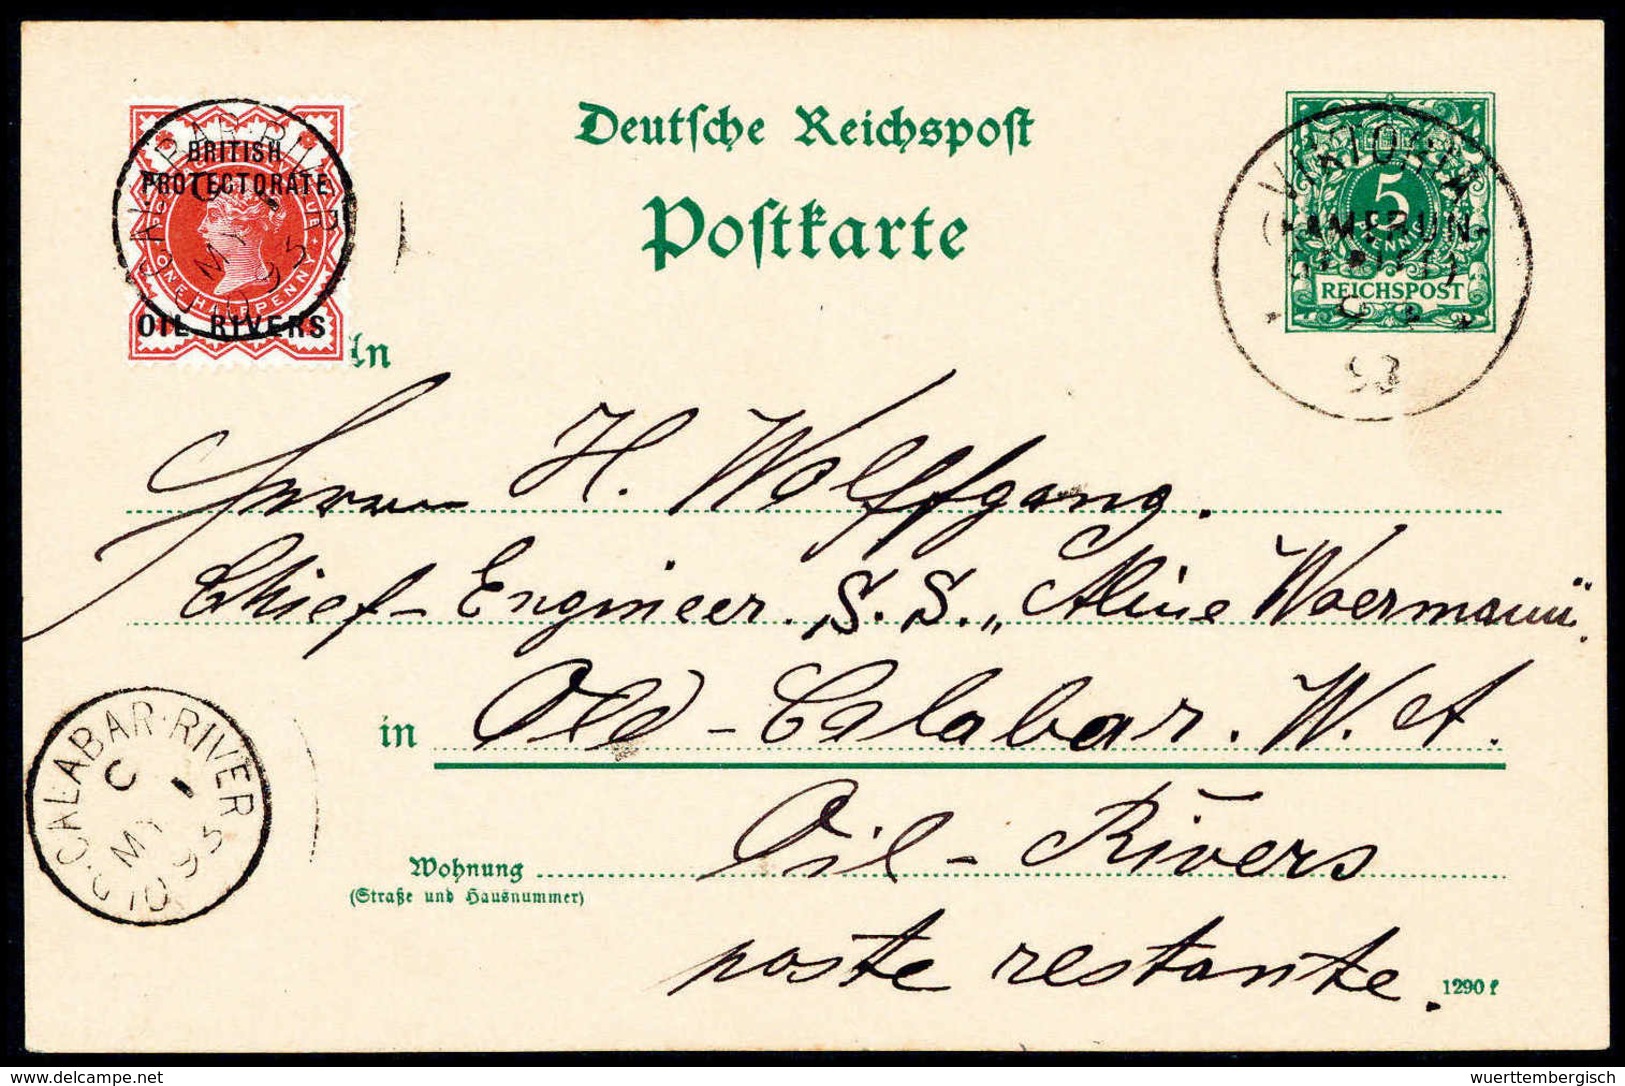 Deutsche Reichspost
Postkarte
BRITISH
PROTECTORATE
ONE HALFPENNY
OIL RIVERS
VIKTORIA
KAMERUN-
5
REICHSPOST
93
An
Herrn H. Wolffgang.
Chief-Engineer. S.S. „Aline Woermann"
in Old-Calabar. W. A.
Oil-Rivers
Wohnung
(Straße und Hausnummer)
poste restante.
OLD·CALABAR·RIVER
C
MY 10
95
1290 f
wuerttembergisch